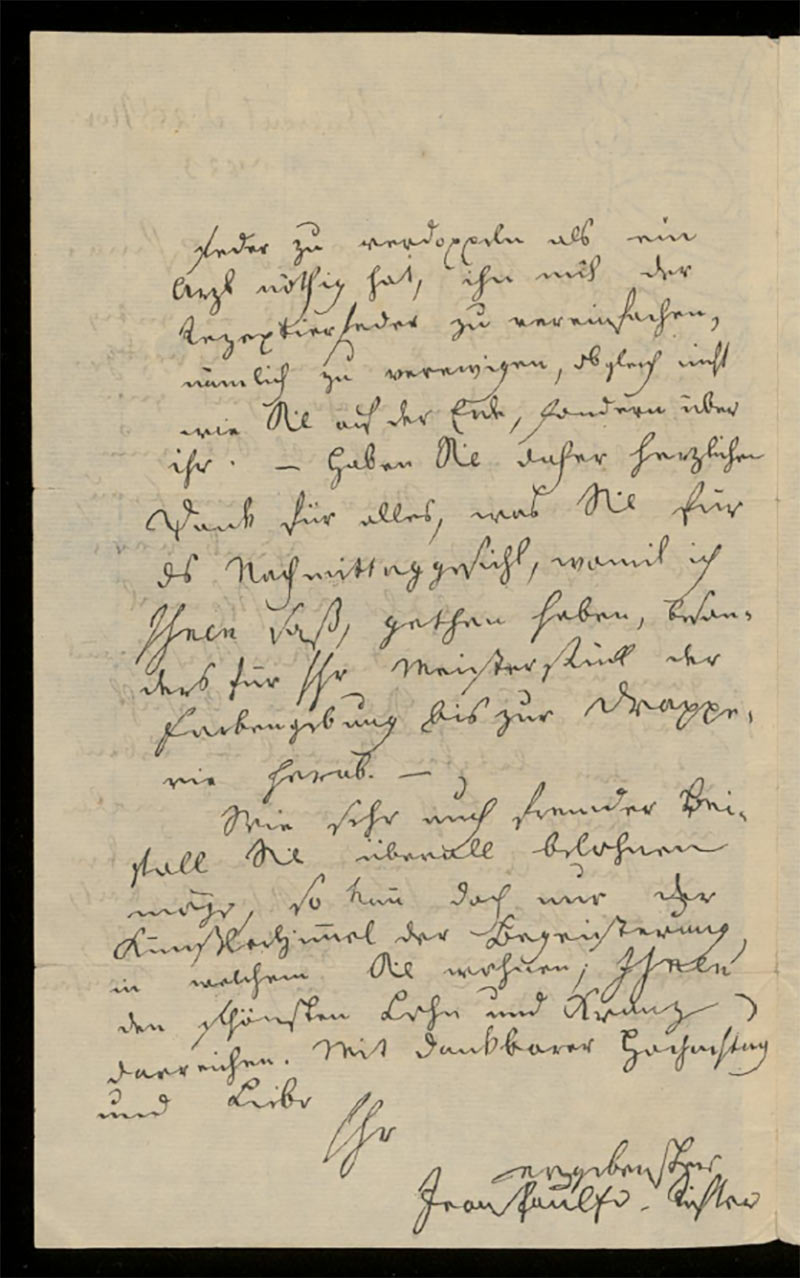 Feder zu verdoppeln als ein
Arzt nöthig hat, ihn mit der
Rezeptierfeder zu vereinfachen,
nämlich zu verewigen, obgleich nicht
wie Sie auf der Erde, sondern über
ihr. — Haben Sie daher herzlichen
Dank für alles, was Sie für
das Nachmittaggesicht, womit ich
Ihnen saß, gethan haben, beson-
ders für Ihr Meisterstück der
Farbengebung bis zur Drappe-
rie herab. —
Wie sehr auch fremder Bei-
fall Sie überall belohnen
möge, so kann doch nur der
der Begeisterung,
in welchem Sie wohnen, Ihnen
den schönsten Lohn und Kranz
darreichen. Mit dankbarer Hochachtung
und Liebe
Ihr
ergebenster
Jean Paul Fr. Richter